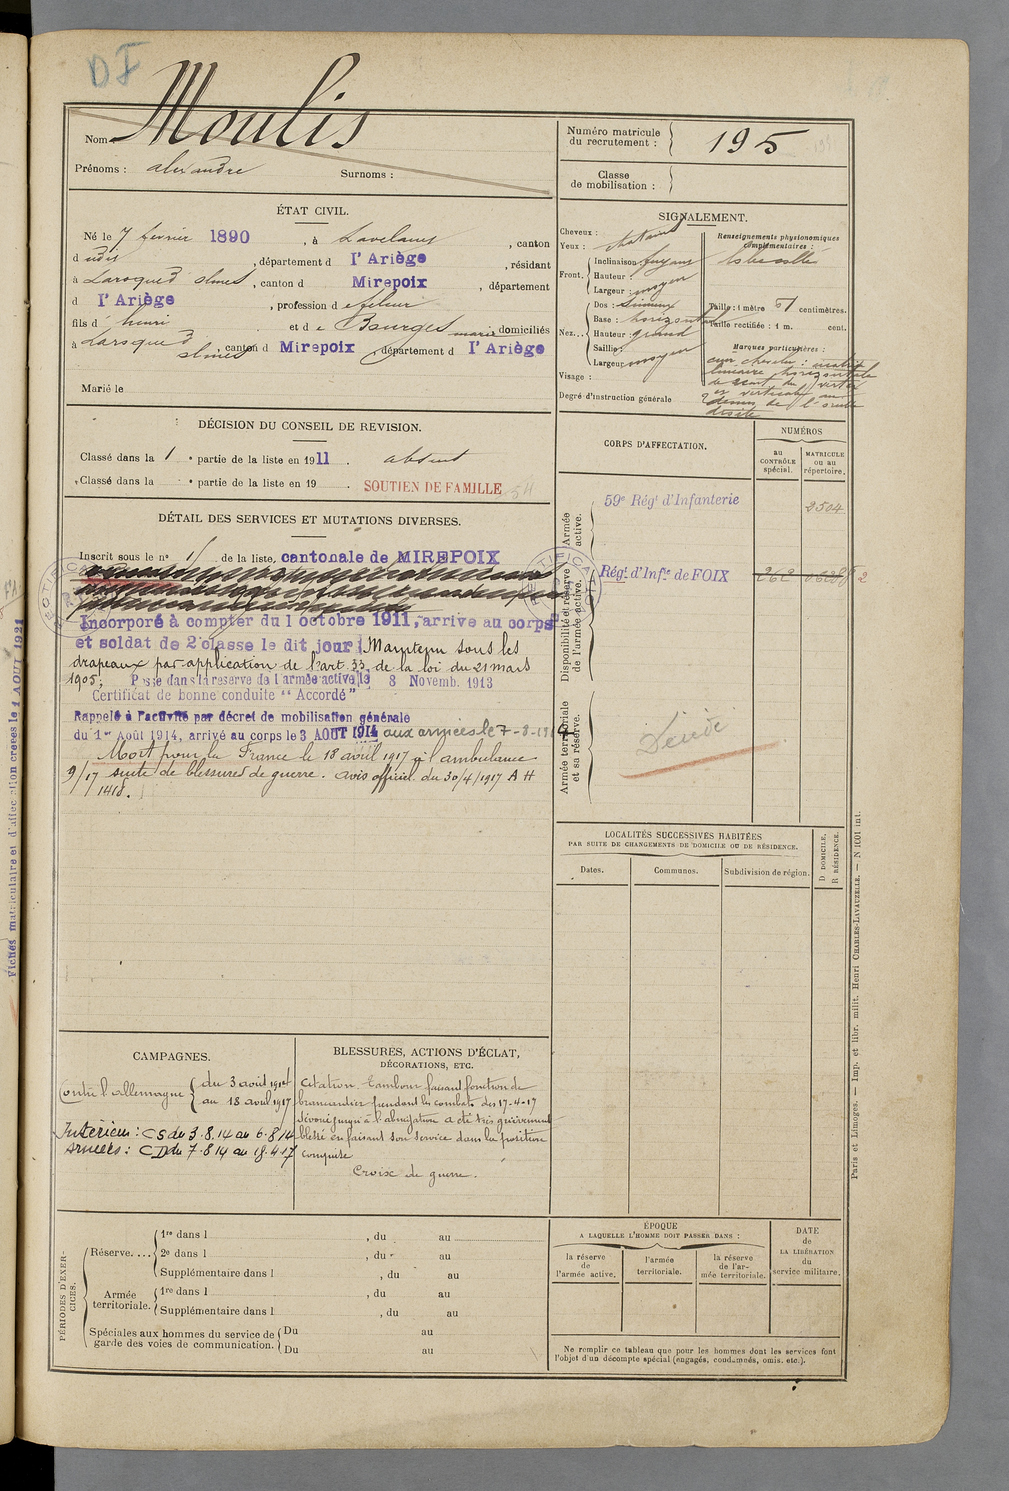 DF
Nom Moulis
Prénoms : alexandre Surnoms :
Numéro matricule du recrutement : 195
Classe de mobilisation :
ÉTAT CIVIL.
Né le 7 février 1890, à Lavelanet, canton
d udit, département d l'Ariège, résidant
à Laroque d'olmes, canton d Mirepoix, département
d l'Ariège, profession d e fileur
fils d' henri et d e Bourges marie domiciliés
à Laroque d'olmes, canton d Mirepoix, département d l'Ariège
Marié le
SIGNALEMENT.
Cheveux :
Yeux : chatains
Front. Inclinaison fuyant
Hauteur :
Largeur : moyen
Nez. Dos : sinueux
Base : horizontal
Hauteur : grand
Saillie :
Largeur moyen
Visage :
Degré d'instruction générale 2
Renseignements physionomiques complémentaires :
Taille : 1 mètre 51 centimètres.
Taille rectifiée : 1 m. cent.
Marques particulières :
linéaire horizontale
droite
DÉCISION DU CONSEIL DE REVISION.
Classé dans la 1 e partie de la liste en 1911. absent
Classé dans la e partie de la liste en 19 . SOUTIEN DE FAMILLE
DÉTAIL DES SERVICES ET MUTATIONS DIVERSES.
Inscrit sous le n° de la liste cantonale de MIREPOIX
Incorporé à compter du 1 octobre 1911, arrivé au corps
et soldat de 2e classe le dit jour Maintenu sous les
drapeaux par application de l'art. 33 de la loi du 21 mars
1905; Passé dans la réserve de l'armée active le 8 Novemb. 1913
Certificat de bonne conduite "Accordé"
Rappelé à l'activité par décret de mobilisation générale
du 1er Août 1914, arrivé au corps le 3 AOUT 1914 aux armées le 7-8-1914
Mort pour la France le 18 avril 1917 à l'ambulance
9/17 suite de blessures de guerre. avis officiel du 30/4/1917 A H
1418.
CORPS D'AFFECTATION.
NUMÉROS
au CONTRÔLE spécial.
MATRICULE ou au répertoire.
Armée active.
59e Régt d'Infanterie 2504
Disponibilité et réserve de l'armée active.
Régt. d'Infie de FOIX
Armée territoriale et sa réserve.
Décédé
LOCALITÉS SUCCESSIVES HABITÉES
PAR SUITE DE CHANGEMENTS DE DOMICILE OU DE RÉSIDENCE.
Dates. Communes. Subdivision de région.
D. DOMICILE, R. RÉSIDENCE.
CAMPAGNES.
Contre l'allemagne du 3 août 1914
au 18 avril 1917
Intérieur : CS du 3.8.14 au 6.8.14
Armées : CD du 7.8.14 au 18.4.17
BLESSURES, ACTIONS D'ÉCLAT,
DÉCORATIONS, ETC.
Citation. Tambour faisant fonction de
brancardier pendant les combats du 17-4-17
Dévoué jusqu'à l'abnégation a été très grièvement
blessé en faisant son service dans la position
conquise
Croix de guerre.
PÉRIODES D'EXERCICES.
Réserve.... 1re dans l , du au
2e dans l , du au
Supplémentaire dans l , du au
Armée territoriale. 1re dans l , du au
Supplémentaire dans l , du au
Spéciales aux hommes du service de Du au
garde des voies de communication. Du au
ÉPOQUE
A LAQUELLE L'HOMME DOIT PASSER DANS :
la réserve de l'armée active.
l'armée territoriale.
la réserve de l'armée territoriale.
DATE de LA LIBÉRATION du service militaire.
Ne remplir ce tableau que pour les hommes dont les services font
l'objet d'un décompte spécial (engagés, condamnés, omis, etc.).
Paris et Limoges. — Imp. et libr. milit. Henri CHARLES-LAVAUZELLE. — N 1001 int.